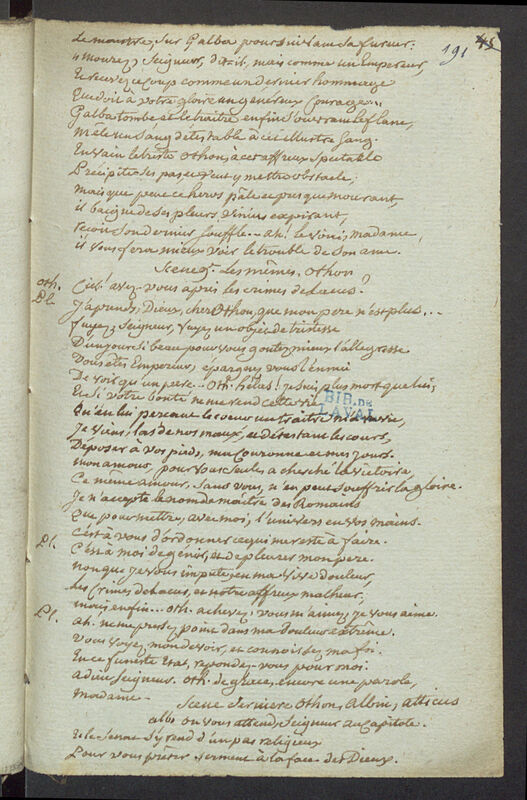 191 45
Le monstre, sur Galba poursuivant sa fureur:
"mourez, Seigneur, dit-il, mais comme un Empereur,
Et recevez ce coup comme un dernier hommage
Que doit à votre gloire un généreux courage...
Galba tombe et le traitre enfin s'ouvrant le flanc,
Mêle un sang détestable à cet illustre sang.
En vain le triste Othon, à cet affreux spectacle
Précipite ses pas et veut y mettre obstacle;
mais que peut ce heros pâle et presque mourant,
il baigne de ses pleurs Vinius expirant,
reçoit son dernier souffle... ah! le voici, madame,
il vous fera mieux voir le trouble de son ame.
Scene 9. Les mêmes, Othon
Oth. Ciel! avez-vous après les crimes de Lacus?
Pl. J'apprends, Dieux, cher Othon, que mon pere n'est plus...
fuyez, Seigneur, fuyez un objet de tristesse
D'un jour si beau pour vous goutez mieux l'allegresse
Vous êtes Empereur, épargnez vous l'ennui
De voir qu'un pere... Oth. hélas! je suis plus mort que lui;
Et si votre bonté ne me rend cette vie
Qu'en lui perçant le coeur un traitre m'a ravie,
Je viens, las de nos maux, et détestant le cours,
Déposer à vos pieds, ma Couronne et mes jours.
mon amour, pour vous seule, a cherché la victoire,
Ce même amour, sans vous, n'en peut souffrir la gloire.
Je n'accepte le nom de maître des Romains
Que pour mettre, avec moi, l'univers en vos mains.
C'est à vous d'ordonner ce qui me reste à faire.
Pl. C'est à moi de gémir, et de pleurer mon pere.
non que je vous impute, en ma vive douleur,
Les crimes de Lacus, et notre affreux malheur,
mais enfin... Oth. achevez, vous m'aimez, je vous aime.
Pl. ah. ne me pressez point dans ma douleur extrême.
Vous voyez mon devoir, et connoissez ma foi.
En ce funeste état, répondez-vous pour moi.
adieu Seigneur. Oth. de grace, encore une parole,
Madame.
Scene derniere Othon, Albin, Atticus
alb. on vous attend, Seigneur au Capitole.
Et le Senat s'y rend d'un pas religieux
Pour vous prêter serment à la face des Dieux.
BIB. DE
LAVAL